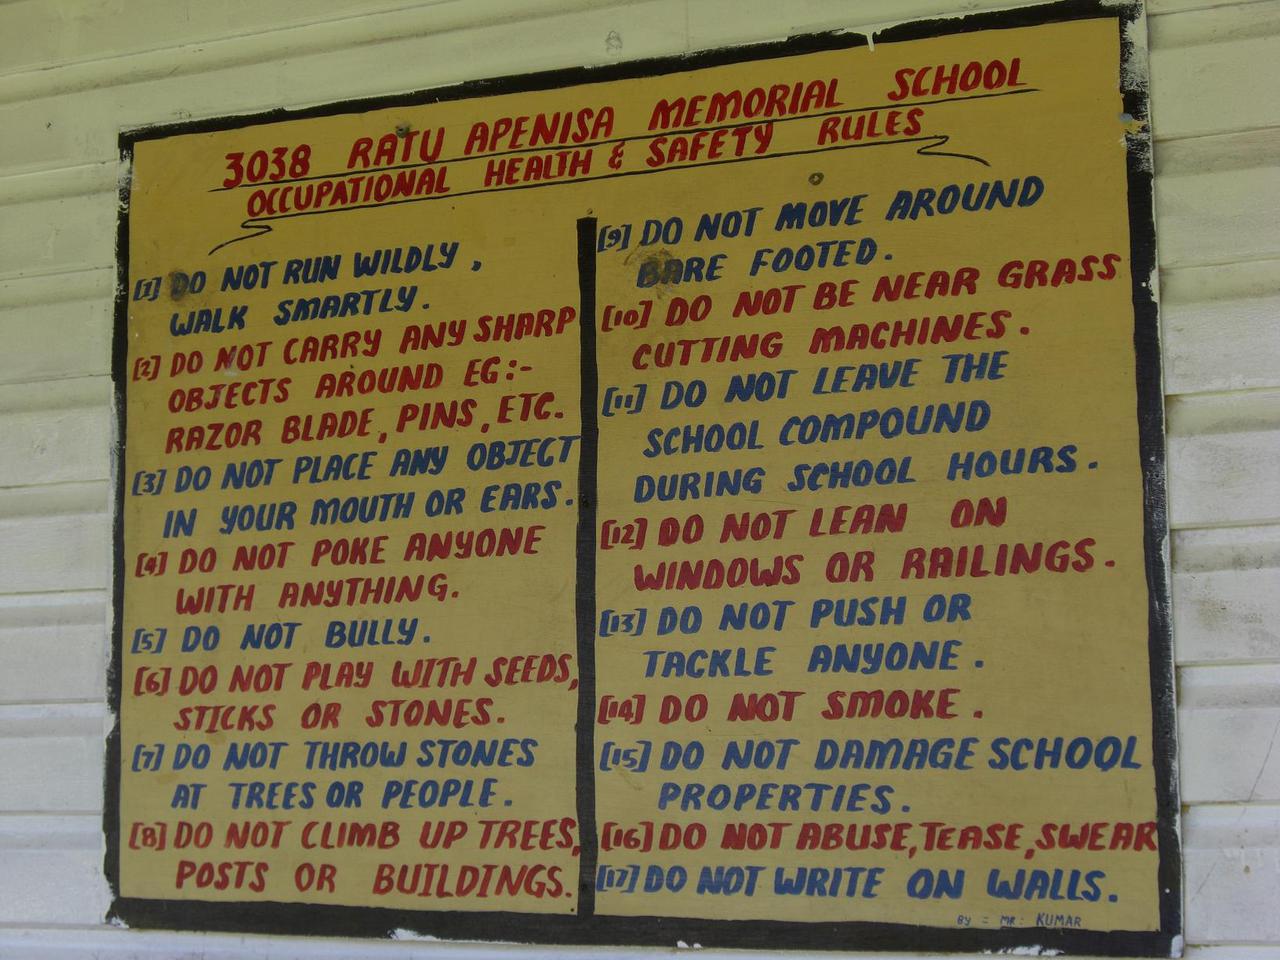 3038 RATU APENISA MEMORIAL SCHOOL
OCCUPATIONAL HEALTH & SAFETY RULES
[1] DO NOT RUN WILDLY,
WALK SMARTLY.
[2] DO NOT CARRY ANY SHARP
OBJECTS AROUND EG:-
RAZOR BLADE, PINS, ETC.
[3] DO NOT PLACE ANY OBJECT
IN YOUR MOUTH OR EARS.
[4] DO NOT POKE ANYONE
WITH ANYTHING.
[5] DO NOT BULLY.
[6] DO NOT PLAY WITH SEEDS,
STICKS OR STONES.
[7] DO NOT THROW STONES
AT TREES OR PEOPLE.
[8] DO NOT CLIMB UP TREES,
POSTS OR BUILDINGS.
[9] DO NOT MOVE AROUND
BARE FOOTED.
[10] DO NOT BE NEAR GRASS
CUTTING MACHINES.
[11] DO NOT LEAVE THE
SCHOOL COMPOUND
DURING SCHOOL HOURS.
[12] DO NOT LEAN ON
WINDOWS OR RAILINGS.
[13] DO NOT PUSH OR
TACKLE ANYONE.
[14] DO NOT SMOKE.
[15] DO NOT DAMAGE SCHOOL
PROPERTIES.
[16] DO NOT ABUSE, TEASE, SWEAR
[17] DO NOT WRITE ON WALLS.
BY = MR: KUMAR